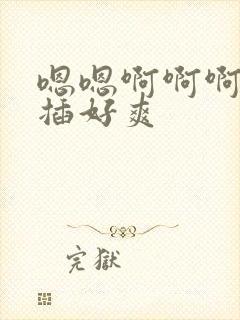 嗯嗯啊啊啊
插好爽
完獄